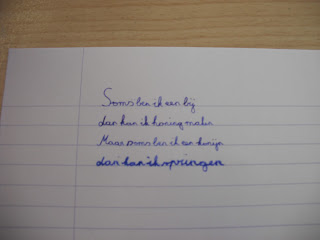 Soms ben ik een bij
dan kan ik honing maken
Maar soms ben ik een konijn
dan kan ik springen